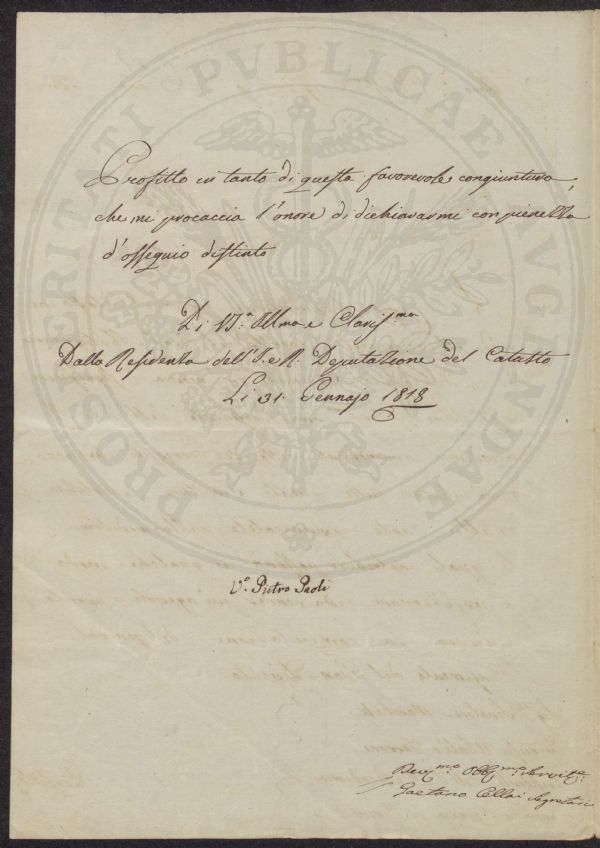 PROSPERITATI PVBLICAE AVGENDAE
Profitto in tanto di questa favorevole congiuntura,
che mi procaccia l'onore di dichiararmi con pienezza
d'ossequio distinto
Di V.ª Illma e Clariss.ma
Dalla Residenza dell'I. e R. Deputazione del Catasto
Li 31. Gennajo 1818
V.º Pietro Paoli
Dev.mo Obblg.mo Servit.e
Gaetano Cellai Segretario